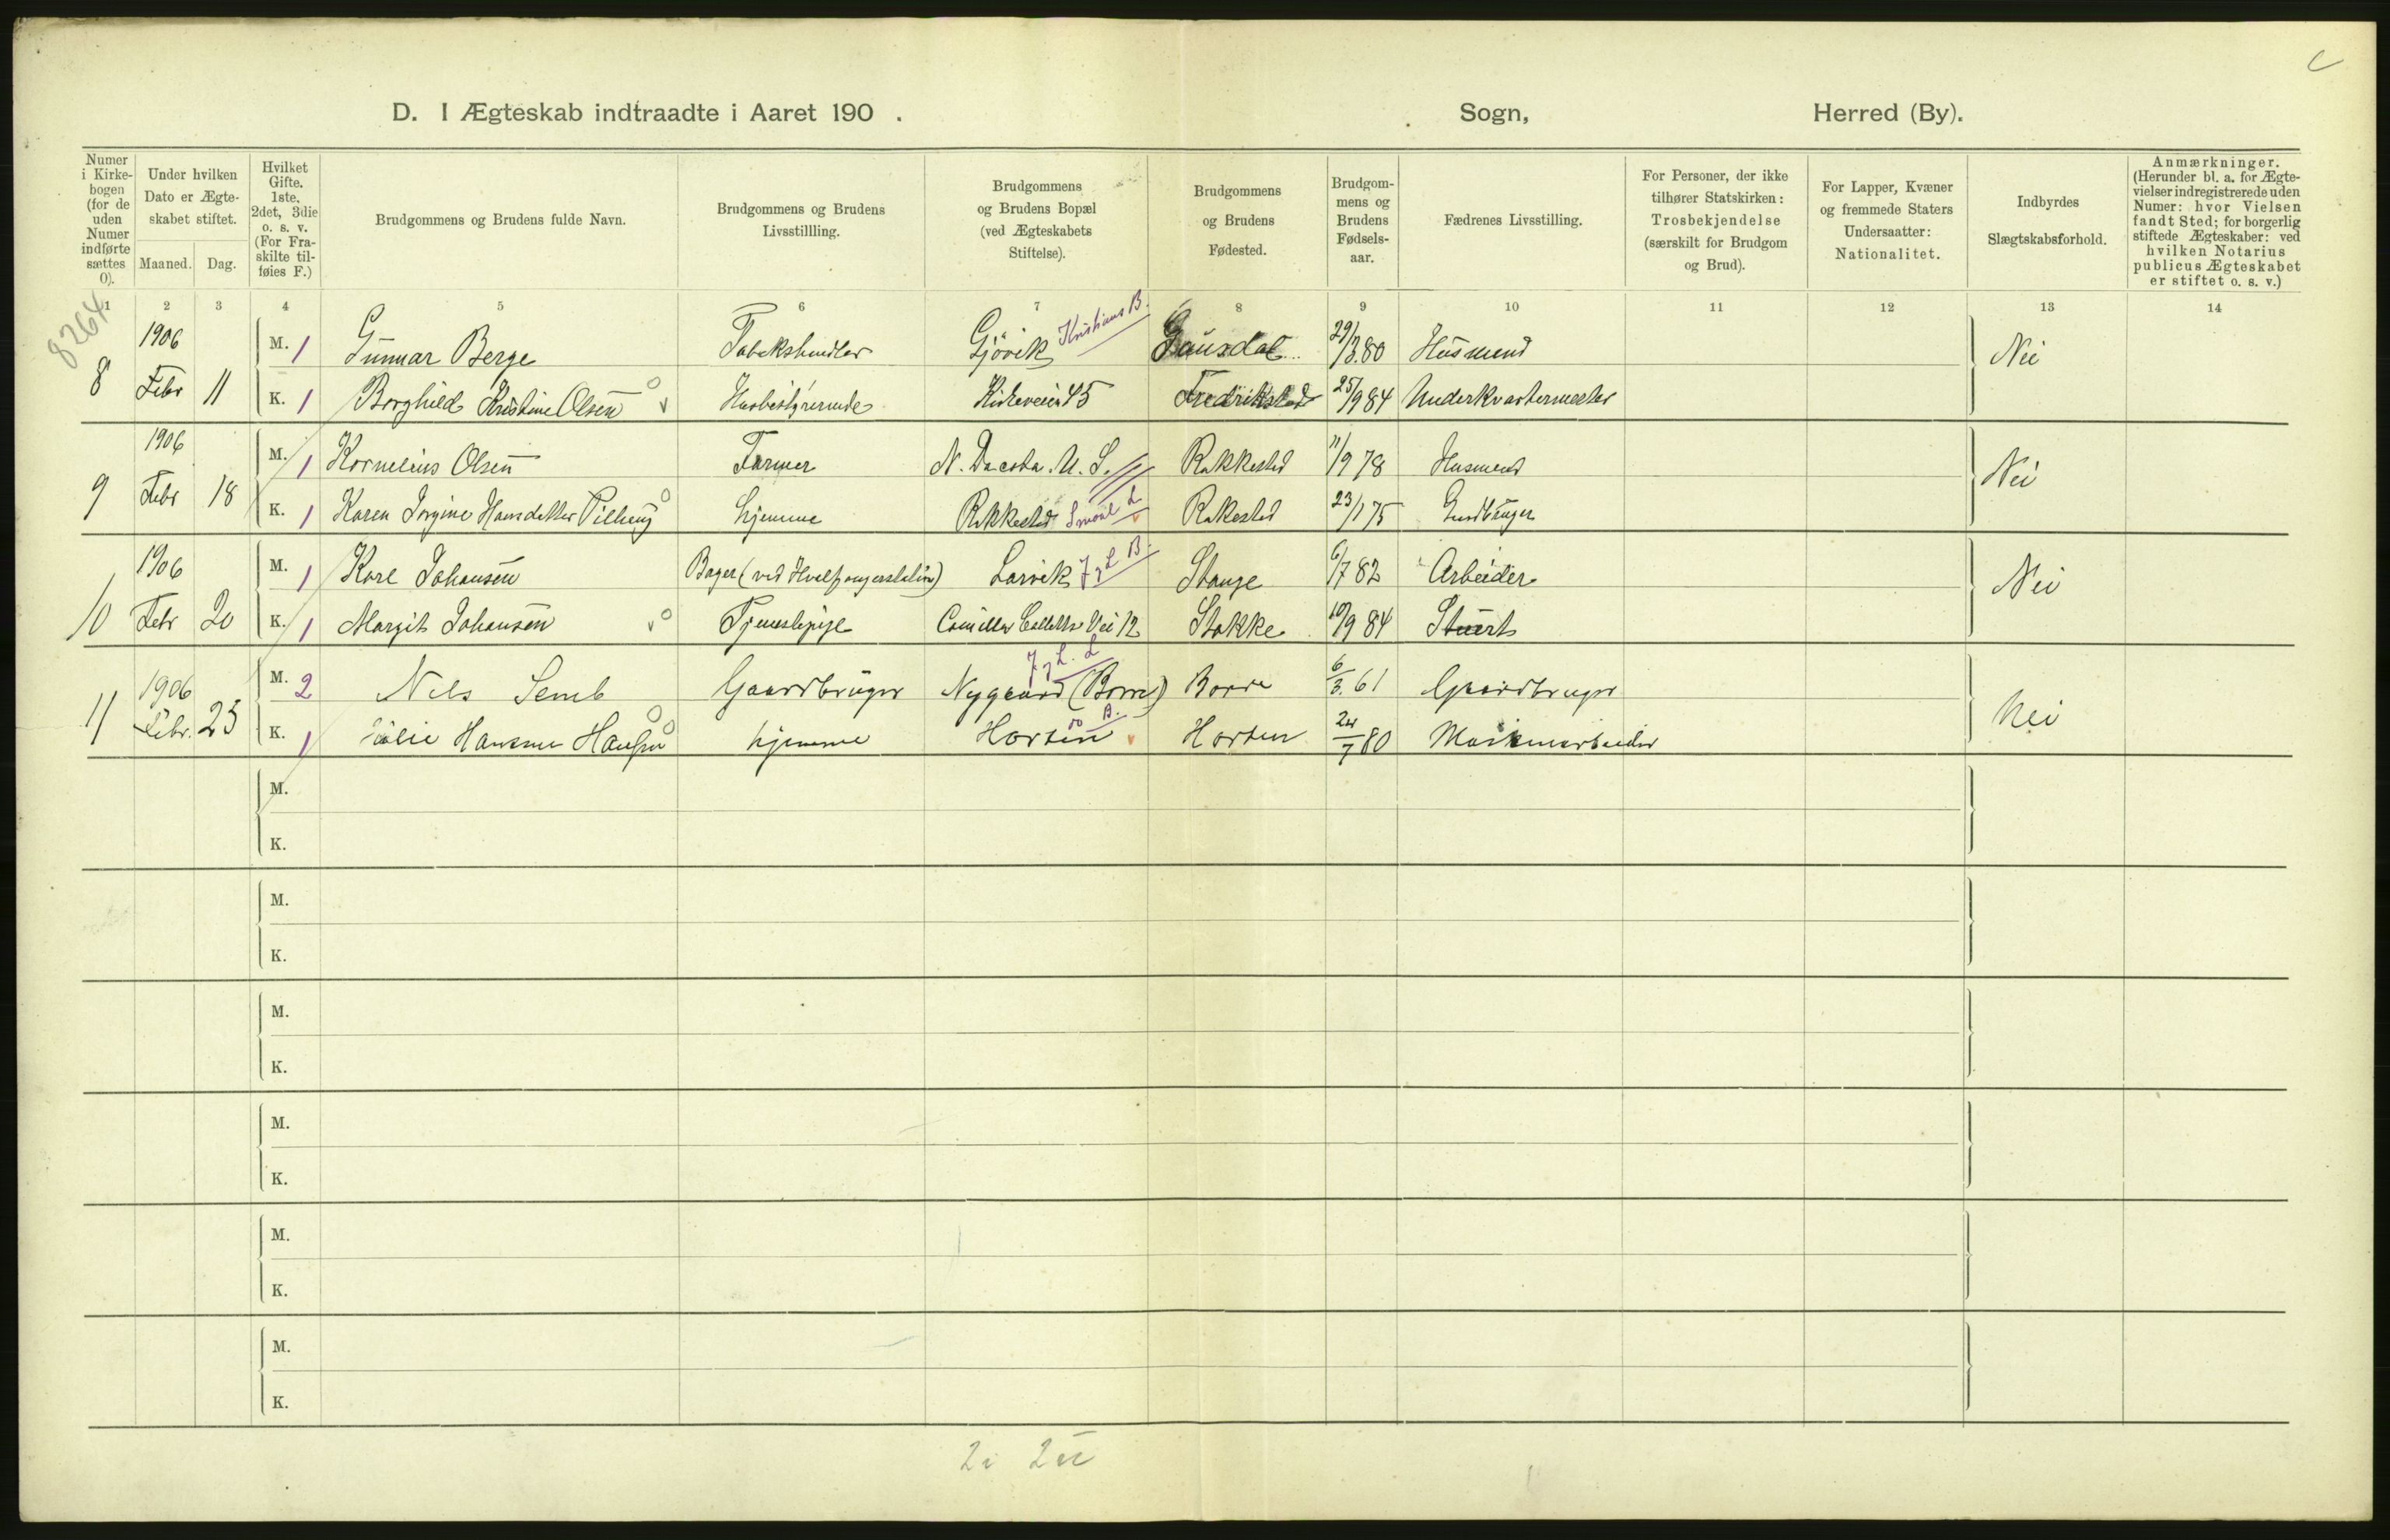 D. I Ægteskab indtraadte i Aaret 190 . Sogn, Herred (By).
Numer i Kirke-bogen (for de uden Numer indførte sættes 0).
Under hvilken Dato er Ægte-skabet stiftet.
Maaned. Dag.
Hvilket Gifte. 1ste, 2det, 3die o. s. v. (For Fra-skilte til-føies F.)
Brudgommens og Brudens fulde Navn.
Brudgommens og Brudens Livsstillling.
Brudgommens og Brudens Bopæl (ved Ægteskabets Stiftelse).
Brudgommens og Brudens Fødested.
Brudgom-mens og Brudens Fødsels-aar.
Fædrenes Livsstilling.
For Personer, der ikke tilhører Statskirken: Trosbekjendelse (særskilt for Brudgom og Brud).
For Lapper, Kvæner og fremmede Staters Undersaatter: Nationalitet.
Indbyrdes Slægtskabsforhold.
Anmærkninger. (Herunder bl. a. for Ægte-vielser indregistrerede uden Numer: hvor Vielsen fandt Sted; for borgerlig stiftede Ægteskaber: ved hvilken Notarius publicus Ægteskabet er stiftet o. s. v.)
1 2 3 4 5 6 7 8 9 10 11 12 13 14
8264
1906 M. 1 Gunnar Berge Tobakshandler Gjøvik Kristians B. Gausdal 29/3.80 Husmand Nei
8 Febr 11 K. 1 Borghild Kristine Olsen Husbestyrerinde Kirkeveien 45 Fredrikstad 25/9 84 Underkvartermester
1906 M. 1 Kornelius Olsen Farmer N. Dacota. U. S. Rakkestad 11/9 78 Husmand Nei
9 Febr 18 K. 1 Karen Hansdatter hjemme Rakkestad Smaal L Rakestad 23/1 75
1906 M. 1 Karl Johansen Bager (ved Hvalfangerstation) Larvik J & L B. Stange 6/7 82 Arbeider Nei
10 Febr 20 K. 1 Margit Johansen Tjenestepige Camilla Colletts Vei 12 Stokke 10/9 84
1906 M. 2 Nils Semb Gaardbruger Nygaard (Borre) J & L. L Borre 6/3. 61 Gaardbruger Nei
11 Febr. 25 K. 1 Hansen hjemme Horten do B. Horten 24/7 80 Maskinarbeider
M.
K.
M.
K.
M.
K.
M.
K.
M.
K.
M.
K.